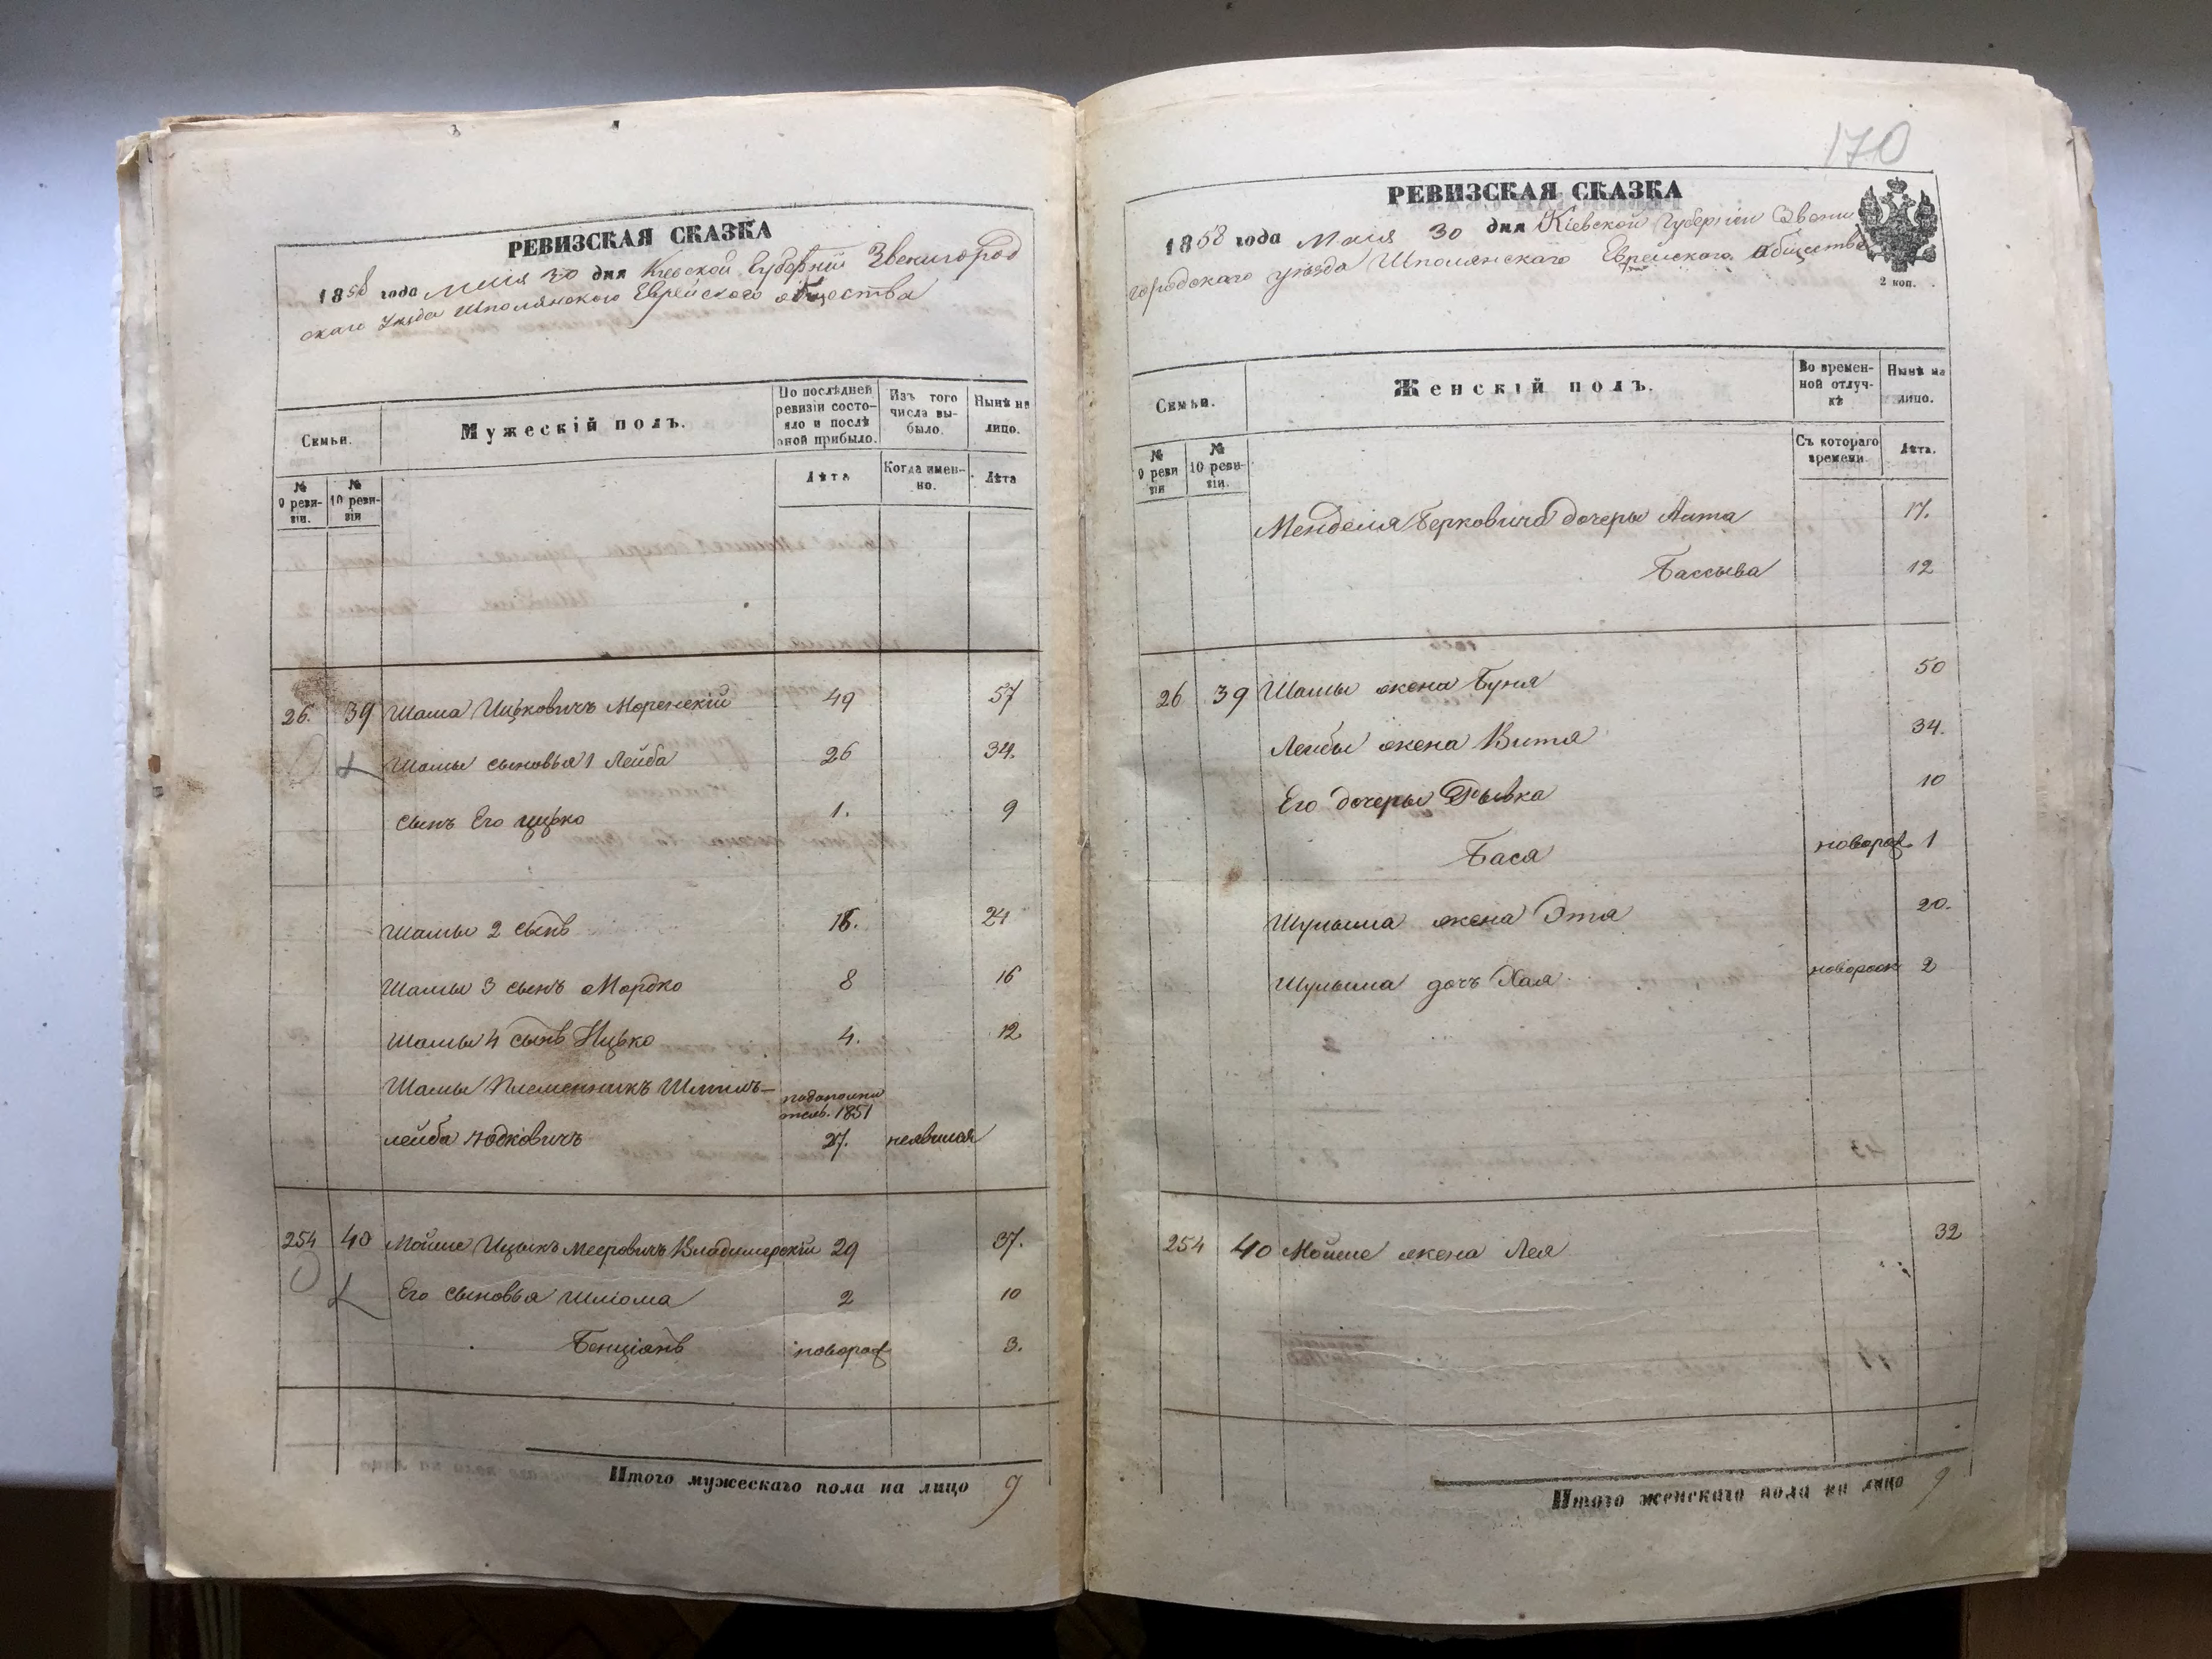 РЕВИЗСКАЯ СКАЗКА
1858 года Мая 30 дня Кіевской Губерніи Звенигород
скаго Уезда Шполянского Еврейского общества
Семьи.
Мужескій полъ.
По послѣдней ревизіи состояло и послѣ оной прибыло.
Изъ того числа выбыло.
Нынѣ на лицо.
№ 9 ревизіи.
№ 10 ревизіи
Лѣта
Когда именно.
Лѣта
26. 39 Шама Ицковичъ 49 57
Шамы сыновья 1 Лейба 26 34.
сынъ Его Ицко 1. 9
Шамы 2 сынъ 16. 24
Шамы 3 сынъ Мордко 8 16
Шамы 4 сынъ Ицько 4. 12
Шамы Племенникъ Шмиль-
1851
лейба Юдковичъ 27. неявился
254 40 Мойше Ицыкъ Мееровичъ Владимерскій 29 37.
Его сыновья Шлиома 2 10
Бенціанъ новорож 3.
Итого мужескаго пола на лицо 9
170
РЕВИЗСКАЯ СКАЗКА
1858 года Мая 30 дня Кіевской Губерніи Звени
городскаго уезда Шполянскаго Еврейскаго общества
2 коп.
Семьи.
Женскій полъ.
Во временной отлучкѣ
Нынѣ на лицо.
№ 9 ревизіи
№ 10 ревизіи.
Съ котораго времени
Лѣта.
Менделя Берковича дочери 17.
Бассыва 12
26 39 Шамы жена Буня 50
Лейбы жена Витя 34.
Его дочеры Рывка 10
Бася новорож 1
Шулыма жена Этя 20.
Шулыма дочъ Хая новорож 2
254 40 Мойше жена Лея 32
Итого женскаго пола на лицо 9